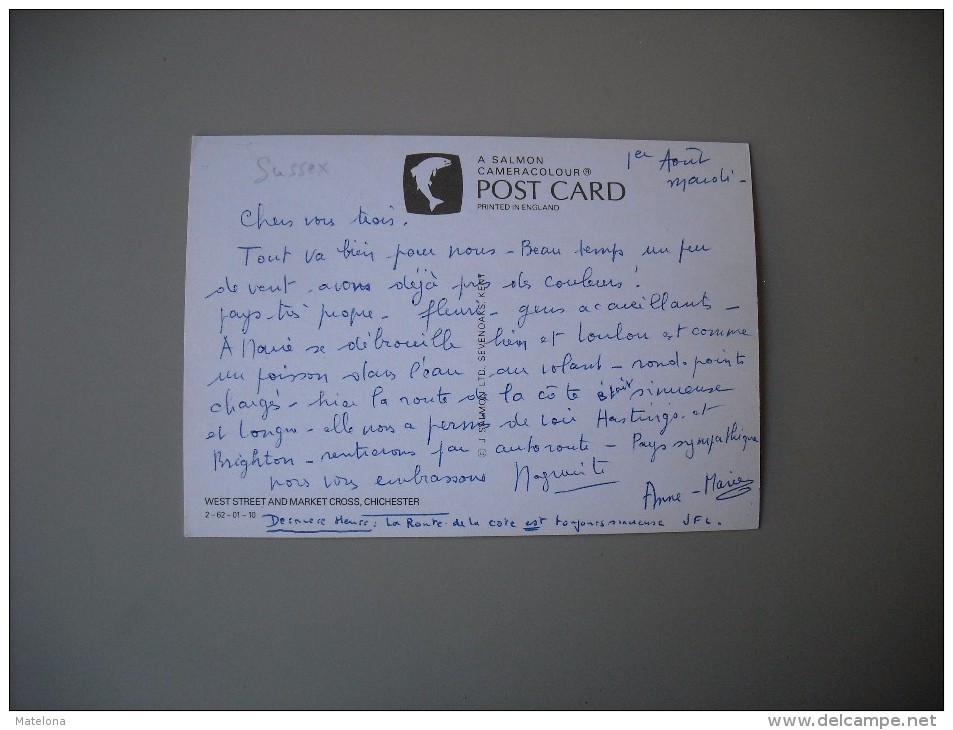 Sussex
A SALMON
CAMERACOLOUR ®
POST CARD
PRINTED IN ENGLAND
1er Août
mardi -
Chers vous trois.
Tout va bien pour nous - Beau temps un peu
de vent. avons déjà pris des couleurs!
pays très propre - fleuri - gens accueillants -
A Marie se débrouille bien et Loulou est comme
un poisson dans l'eau au volant - ronds-points
chargés - hier la route de la côte était sinueuse
et longue - elle nous a permis de voir Hastings et
Brighton - rentrerons par autoroute - Pays sympathique
nous vous embrassons
Anne-Marie
© J SALMON LTD. SEVENOAKS, KENT
WEST STREET AND MARKET CROSS, CHICHESTER
2-62-01-10
Dernière Heure: La Route de la cote est toujours sinueuse JFL.
Matelona
www.delcampe.net